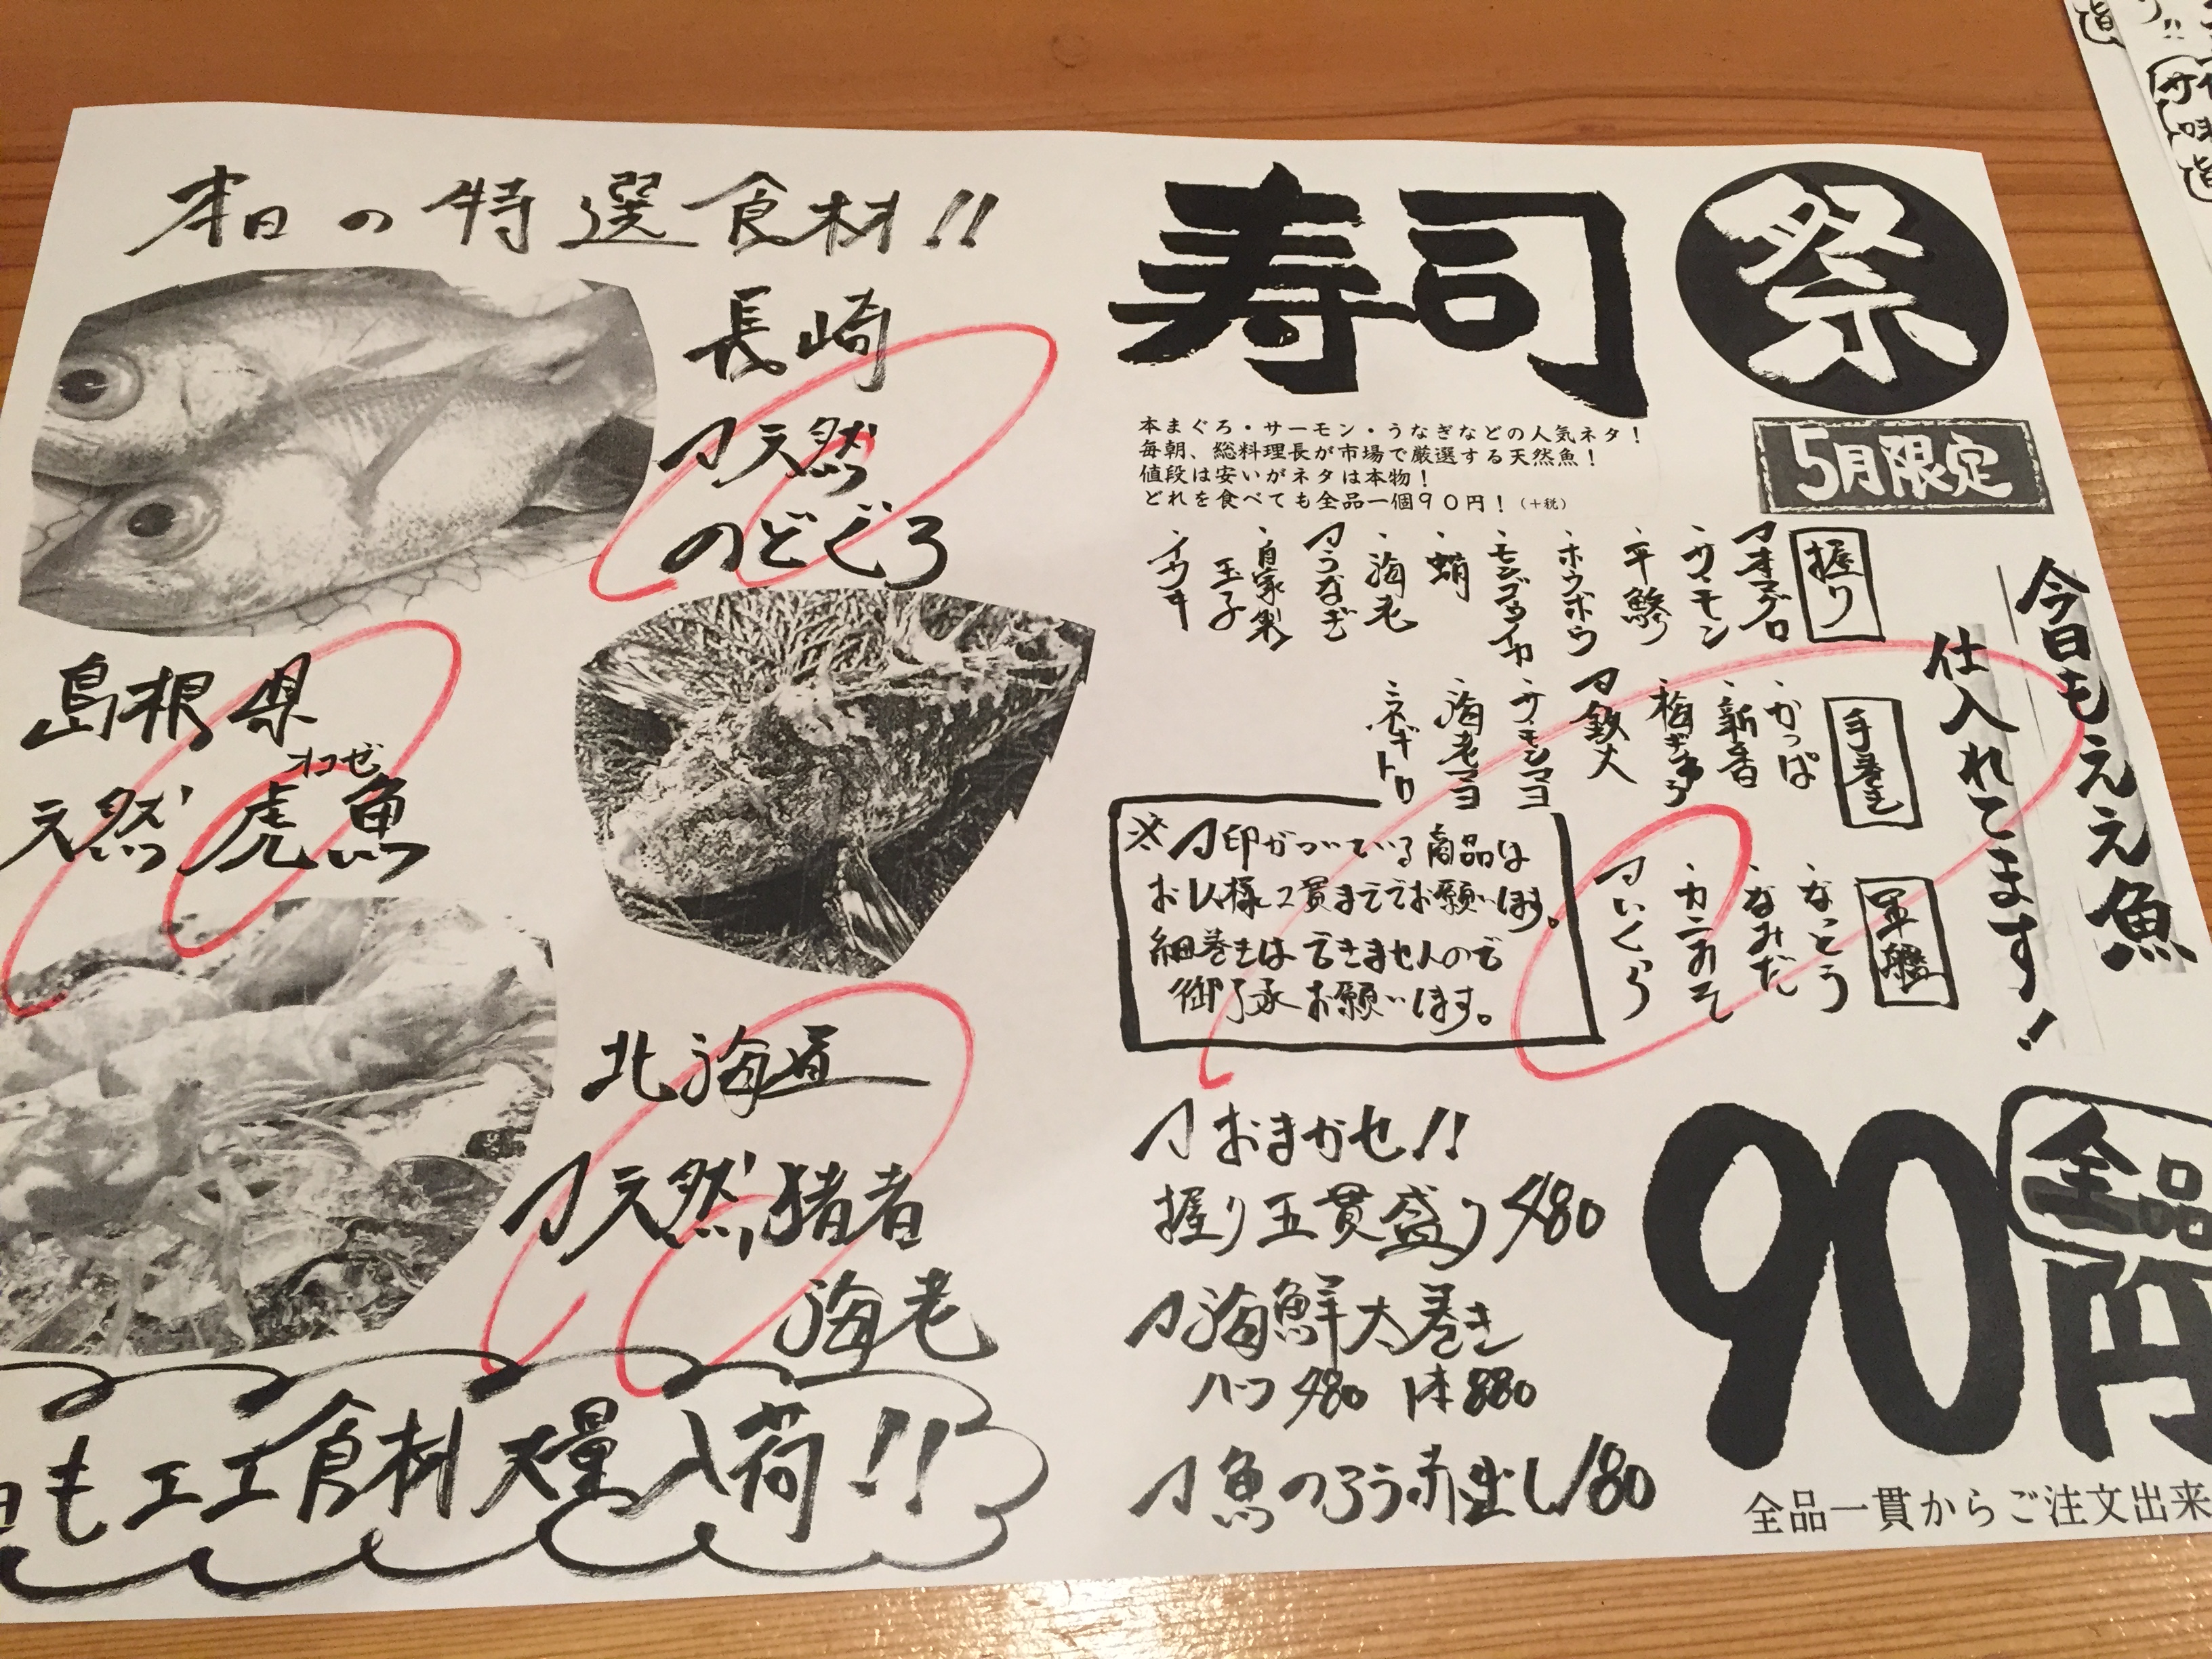 本日の特選食材!!
長崎
〽天然
のどぐろ
島根県
オコゼ
天然虎魚
北海道
〽天然猪者
海老
もエエ食材大量入荷!!
寿司
祭
5月限定
本まぐろ・サーモン・うなぎなどの人気ネタ!
毎朝、総料理長が市場で厳選する天然魚!
値段は安いがネタは本物!
どれを食べても全品一個90円!(+税)
今日もええ魚
仕入れてます!
握り
〽本マグロ
・サーモン
・平鯵
・ホウボウ
・モンゴウイカ
・蛸
・海老
〽うなぎ
・自家製
玉子
手巻き
・かっぱ
・新香
〽鉄火
・サーモンマヨ
・海老マヨ
・ネギトロ
軍艦
・なっとう
・なみだ
・カニみそ
〽いくら
※〽印がついている商品は
お1人様2貫まででお願いします。
細巻きはできませんので
御了承お願いします。
〽おまかせ!!
握り五貫盛り480
〽海鮮太巻き
ハーフ480 1本880
〽魚のあら赤出し180
全品
90円
全品一貫からご注文出来